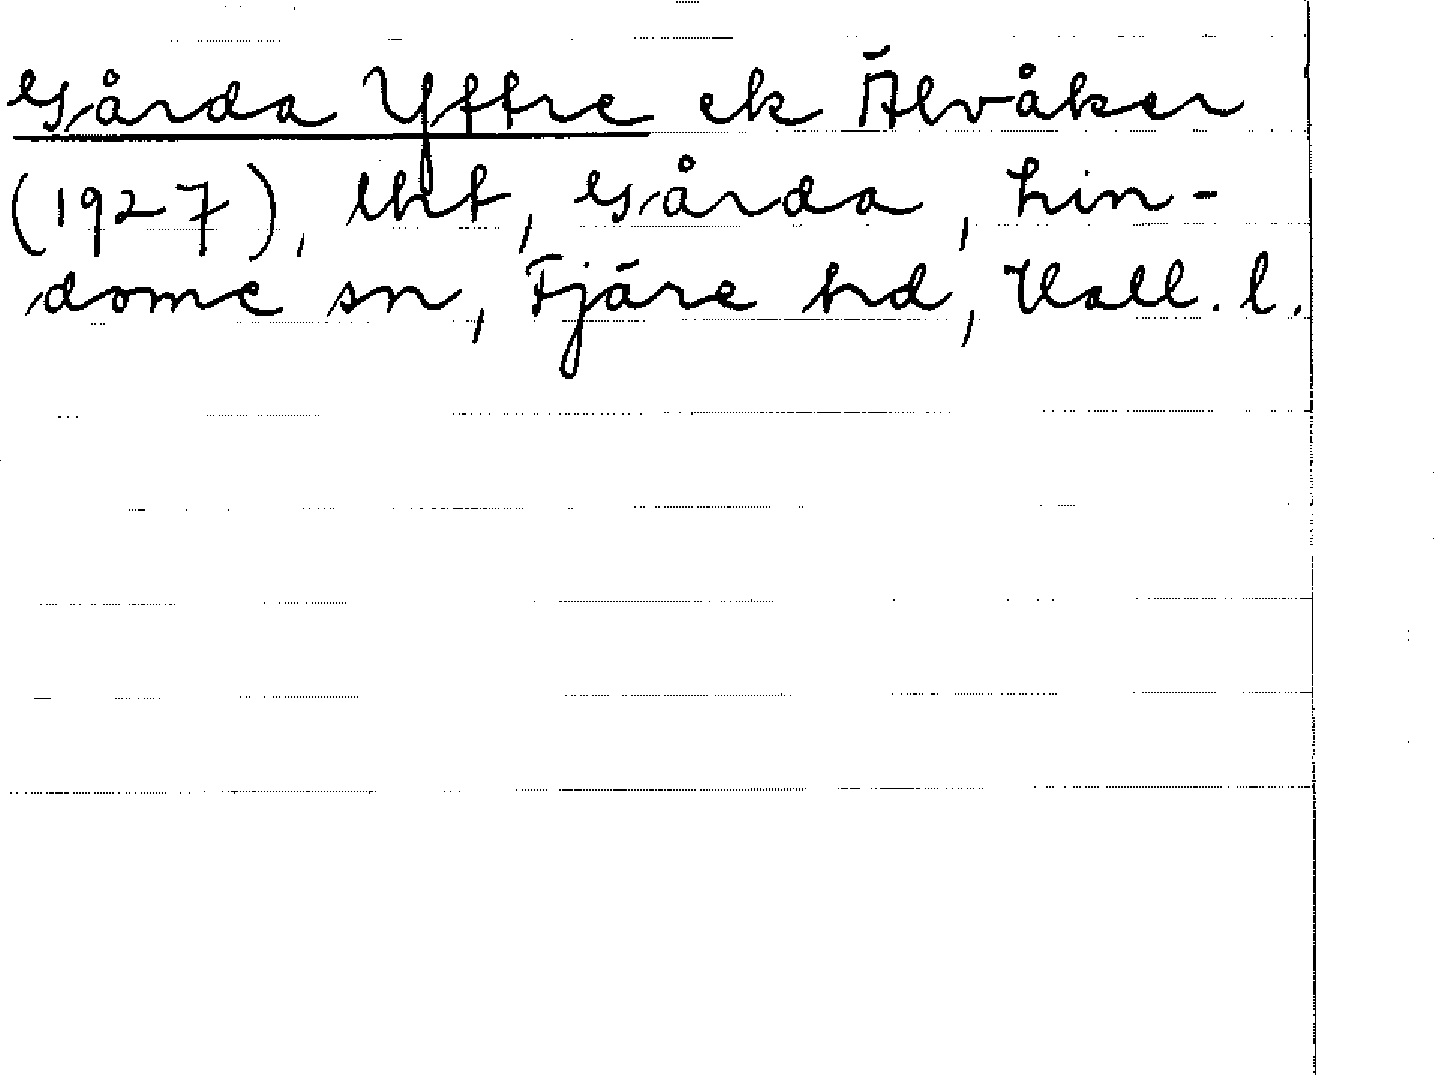 Gårda Yttre ek Älvåker
(1927), lht, Gårda, Lin-
dome sn, Fjäre hd, Hall. l.